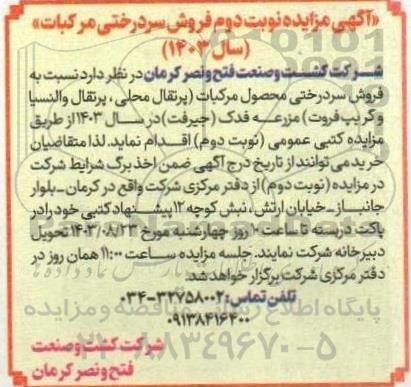 «آگهی مزایده نوبت دوم فروش سردرختی مرکبات»
(سال ۱۴۰۳)
شرکت کشت و صنعت فتح و نصر کرمان در نظر دارد نسبت به
فروش سردرختی محصول مرکبات (پرتقال محلی، پرتقال والنسیا
و گریپ فروت) مزرعه فدک (جیرفت) در سال ۱۴۰۳ از طریق
مزایده کتبی عمومی (نوبت دوم) اقدام نماید. لذا متقاضیان
خرید می توانند از تاریخ درج آگهی ضمن اخذ برگ شرایط شرکت
در مزایده (نوبت دوم) از دفتر مرکزی شرکت واقع در کرمان-بلوار
جانباز-خیابان ارتش، نبش کوچه ۱۲ پیشنهاد کتبی خود را در
پاکت دربسته تا ساعت ۱۰ روز چهارشنبه مورخ ۱۴۰۳/۰۸/۲۳ تحویل
دبیرخانه شرکت نمایند. جلسه مزایده ساعت ۱۱:۰۰ همان روز در
دفتر مرکزی شرکت برگزار خواهد شد.
تلفن تماس: ۳۲۷۵۸۰۰۲-۰۳۴
۰۹۱۳۸۴۱۶۴۰۰
پایگاه اطلاع رسانی مناقصه و مزایده
۰۲۱-۸۸۳۴۹۶۷۰-۵
شرکت کشت و صنعت
فتح و نصر کرمان